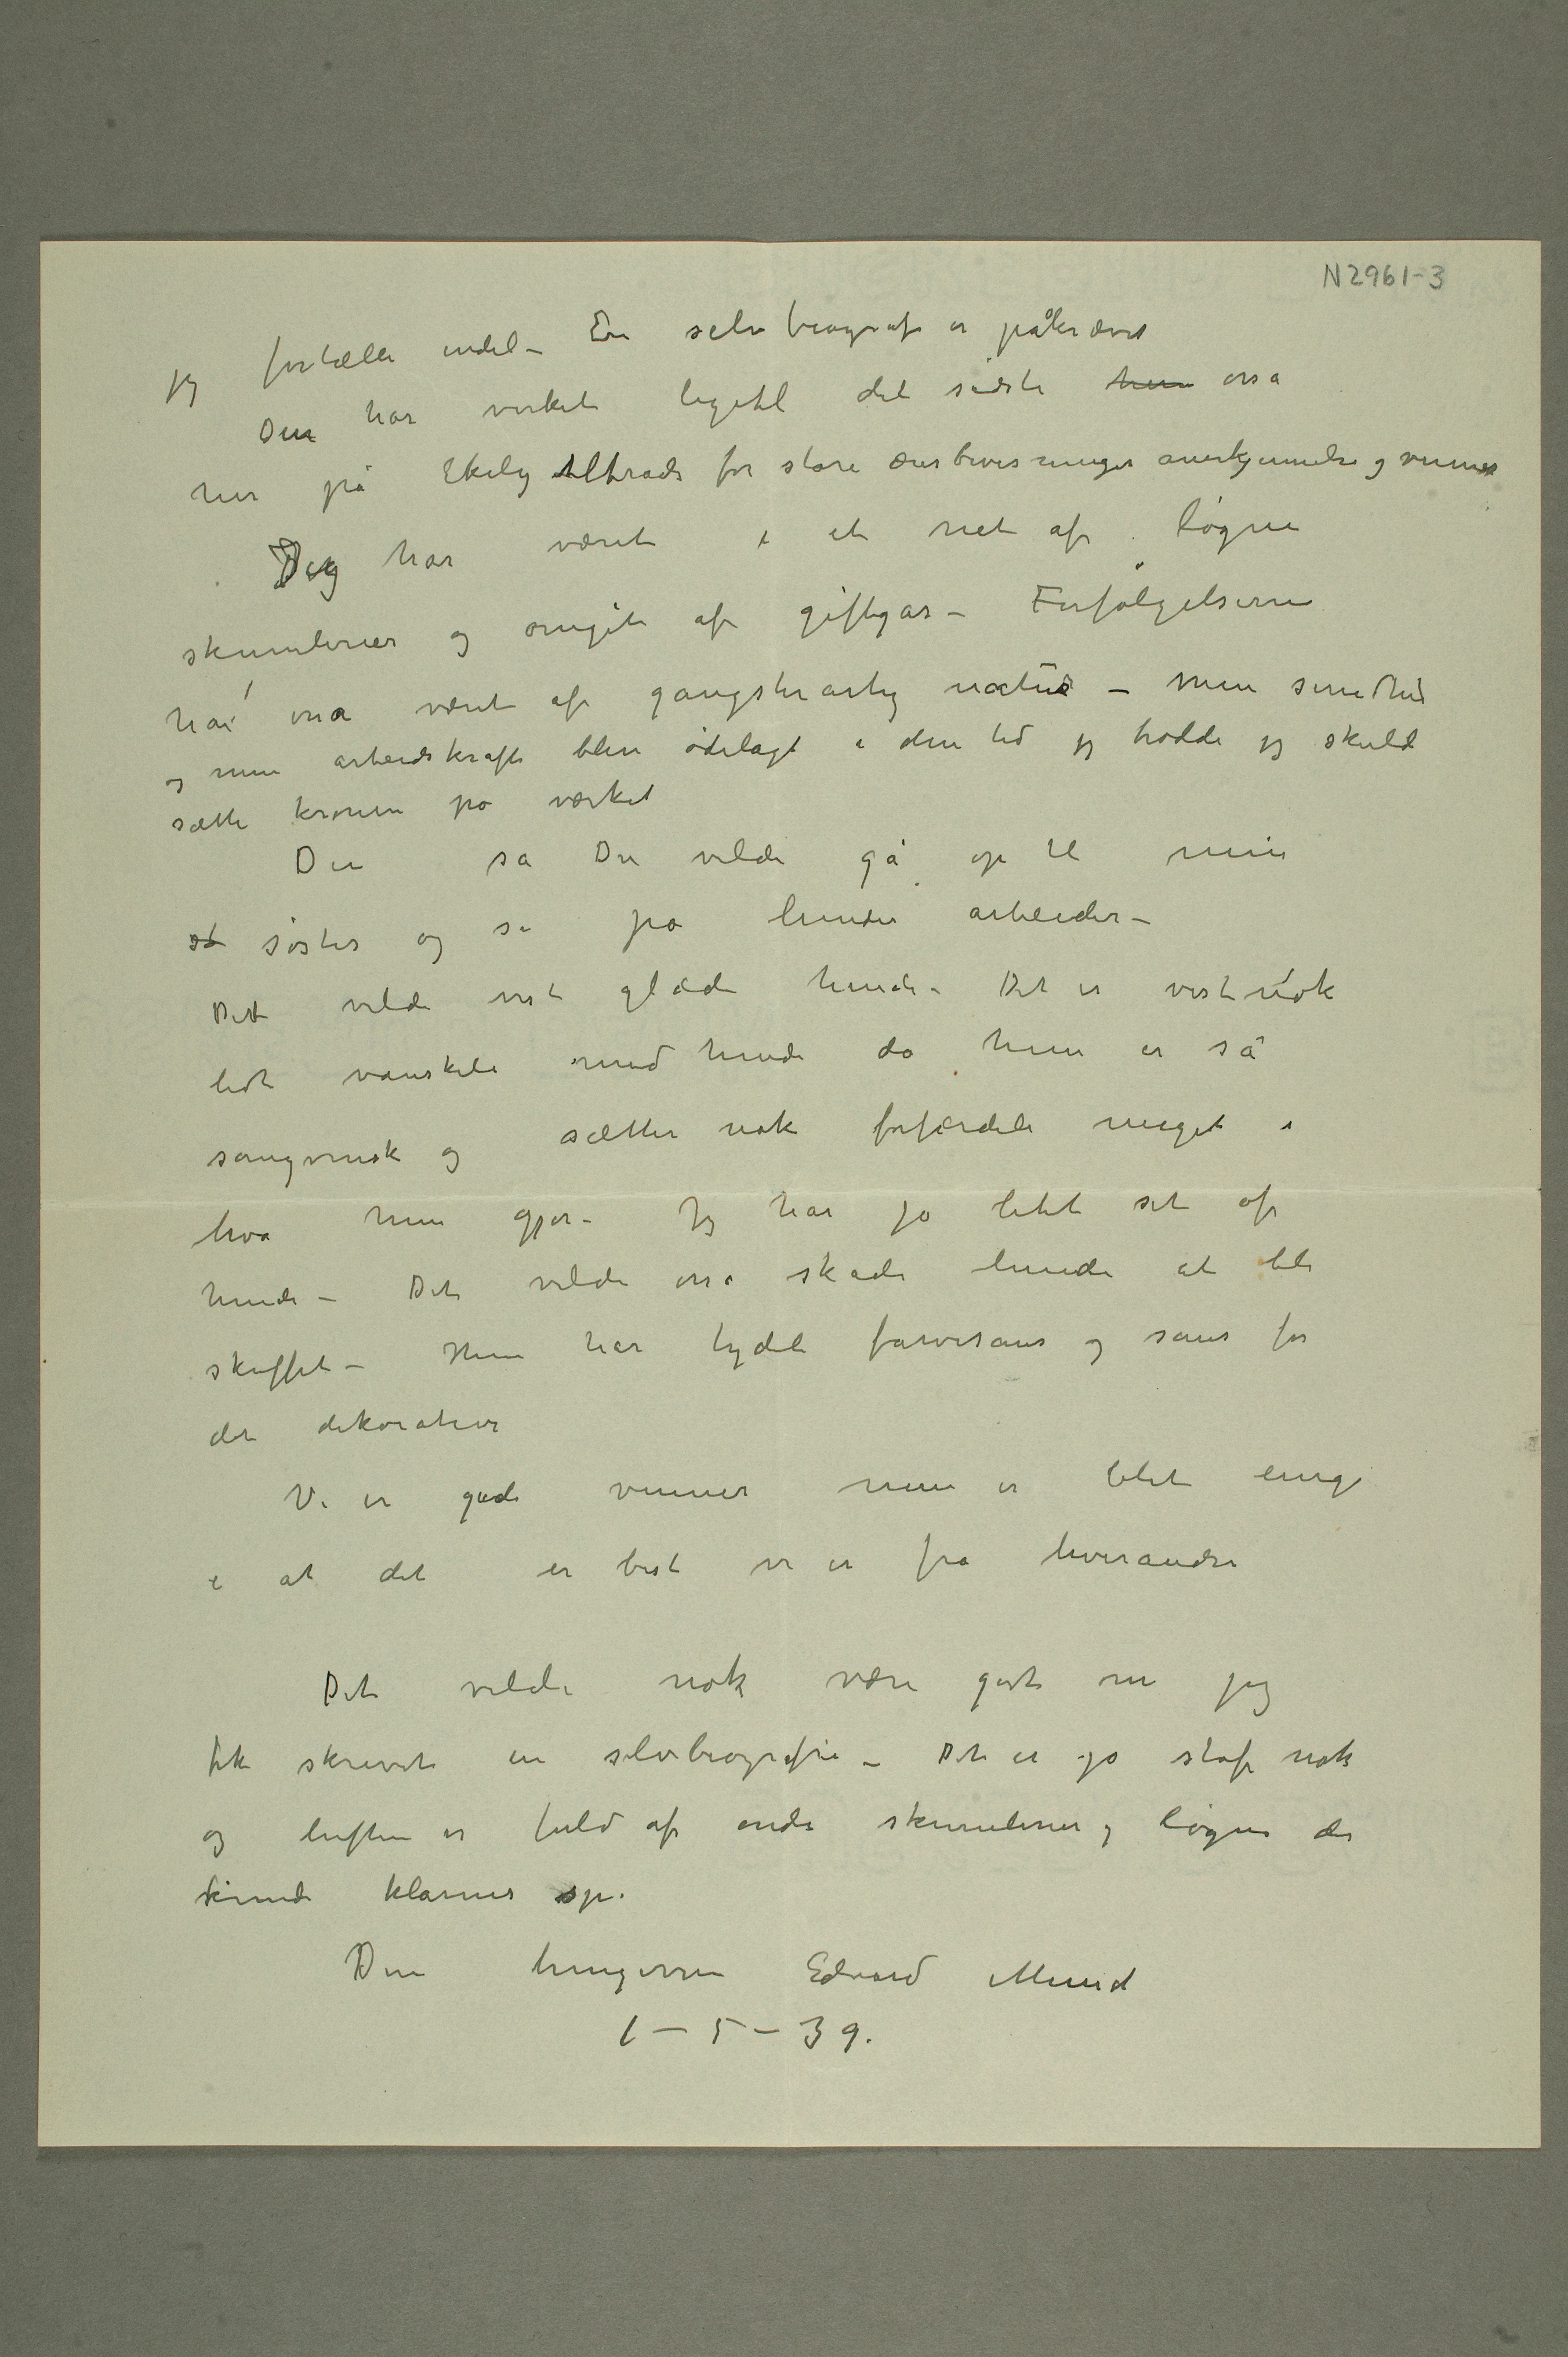 N 2961-3
jeg fortælle endel – En selvbiografi er påkrævet
Den har virket ligetil det sidste hun osså
her på Ekely tiltrods for store æresbevisninger anerkjennelse og venner
Jeg har været i et net af løgne
skumlerier og omgit af giftgas – Forfølgelserne
har osså været af gangsterartig natur – Min sundhed
og min arbeidskraft blev ødelagt i den tid jeg trodde jeg skuld
sætte kronen på værket
Du sa Du vilde gå op til min
st søster og se på hendes arbeider –
Det vilde vist glæde hende – Det er vist nok
lidt vanskeli med hende da hun er så
sangvinsk og sætter nok forfærdeli meget i
hva hun gjør – Jeg har jo litet set af
hende – Det vilde osså skade hende at bli
skuffet – Hun har tydeli farvesans og sans for
det dekorative
Vi er gode venner men er blet enige
i at det er bedst vi er fra hverandre
Det vilde nok være godt om jeg
fik skrevet en selvbiografi – Det er jo stof nok
og luften er fuld af onde skumlerier og løgne der
kunde klarnes op.
Din hengivne Edvard Munch
1 – 5 – 39.